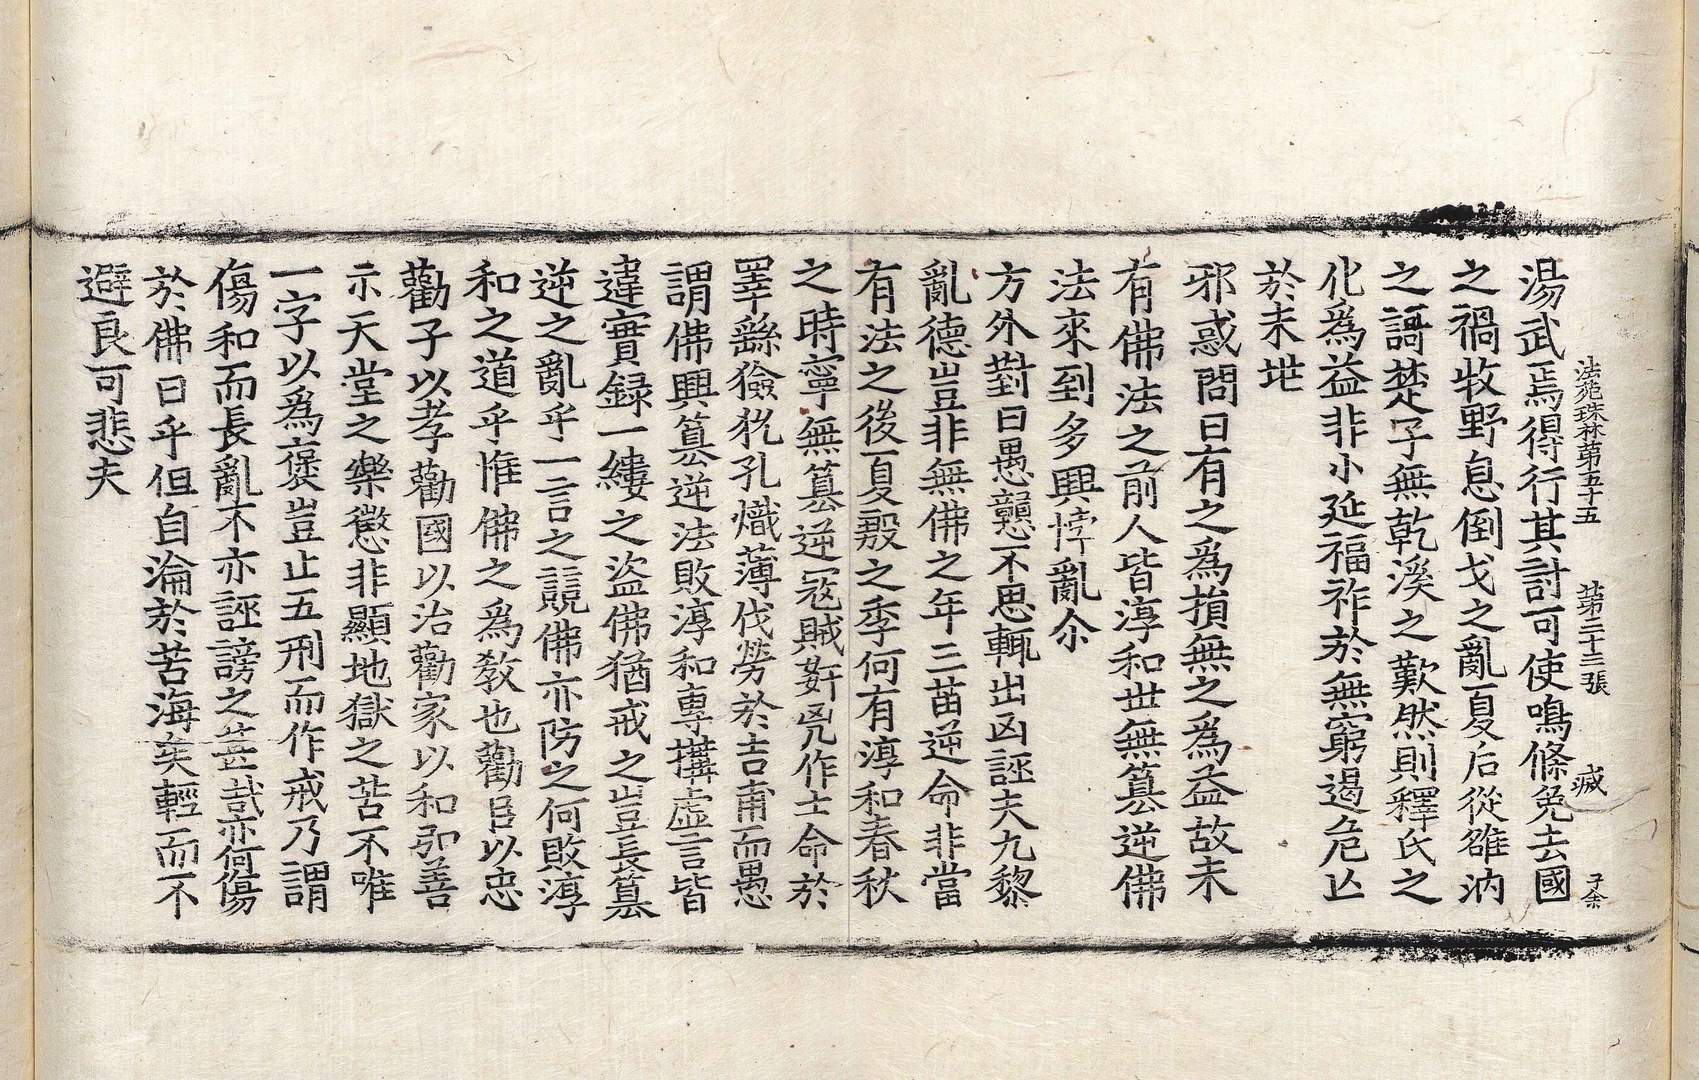 法苑珠林第五十五 第二十三張 㽉 子余
湯武焉得行其討可使鳴條免去國
之禍牧野息倒戈之亂夏后從雒汭
之謌楚子無乾溪之歎然則釋氏之
化為益非小延福祚於無窮遏危亾
於未世
邪惑問曰有之為損無之為益故未
有佛法之前人皆淳和世無篡逆佛
法來到多興悖亂尒
方外對曰愚戇不思輒出凶誣夫九黎
亂德豈非無佛之年三苗逆命非當
有法之後夏殷之季何有淳和春秋
之時寧無篡逆寇賊姧宄作士命於
睪繇獫狁孔熾薄伐勞於吉甫而愚
謂佛興篡逆法敗淳和專搆虛言皆
違實錄一縷之盜佛猶戒之豈長篡
逆之亂乎一言之競佛亦防之何敗淳
和之道乎惟佛之為教也勸臣以忠
勸子以孝勸國以治勸家以和弘善
示天堂之樂懲非顯地獄之苦不唯
一字以為褒豈止五刑而作戒乃謂
傷和而長亂不亦誣謗之甚哉亦何傷
於佛日乎但自淪於苦海矣輕而不
避良可悲夫